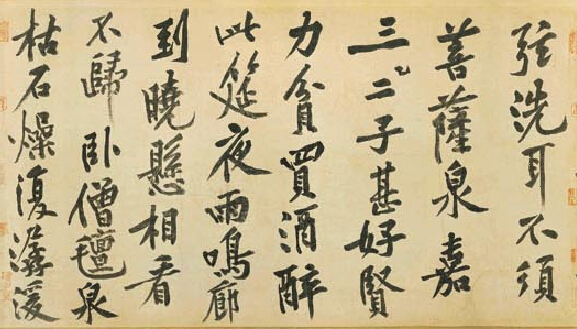 弦洗耳不須
菩薩泉嘉
三二子甚好賢
力貧買酒醉
此筵夜雨鳴廊
到曉懸相看
不歸臥僧氈泉
枯石燥復潺湲